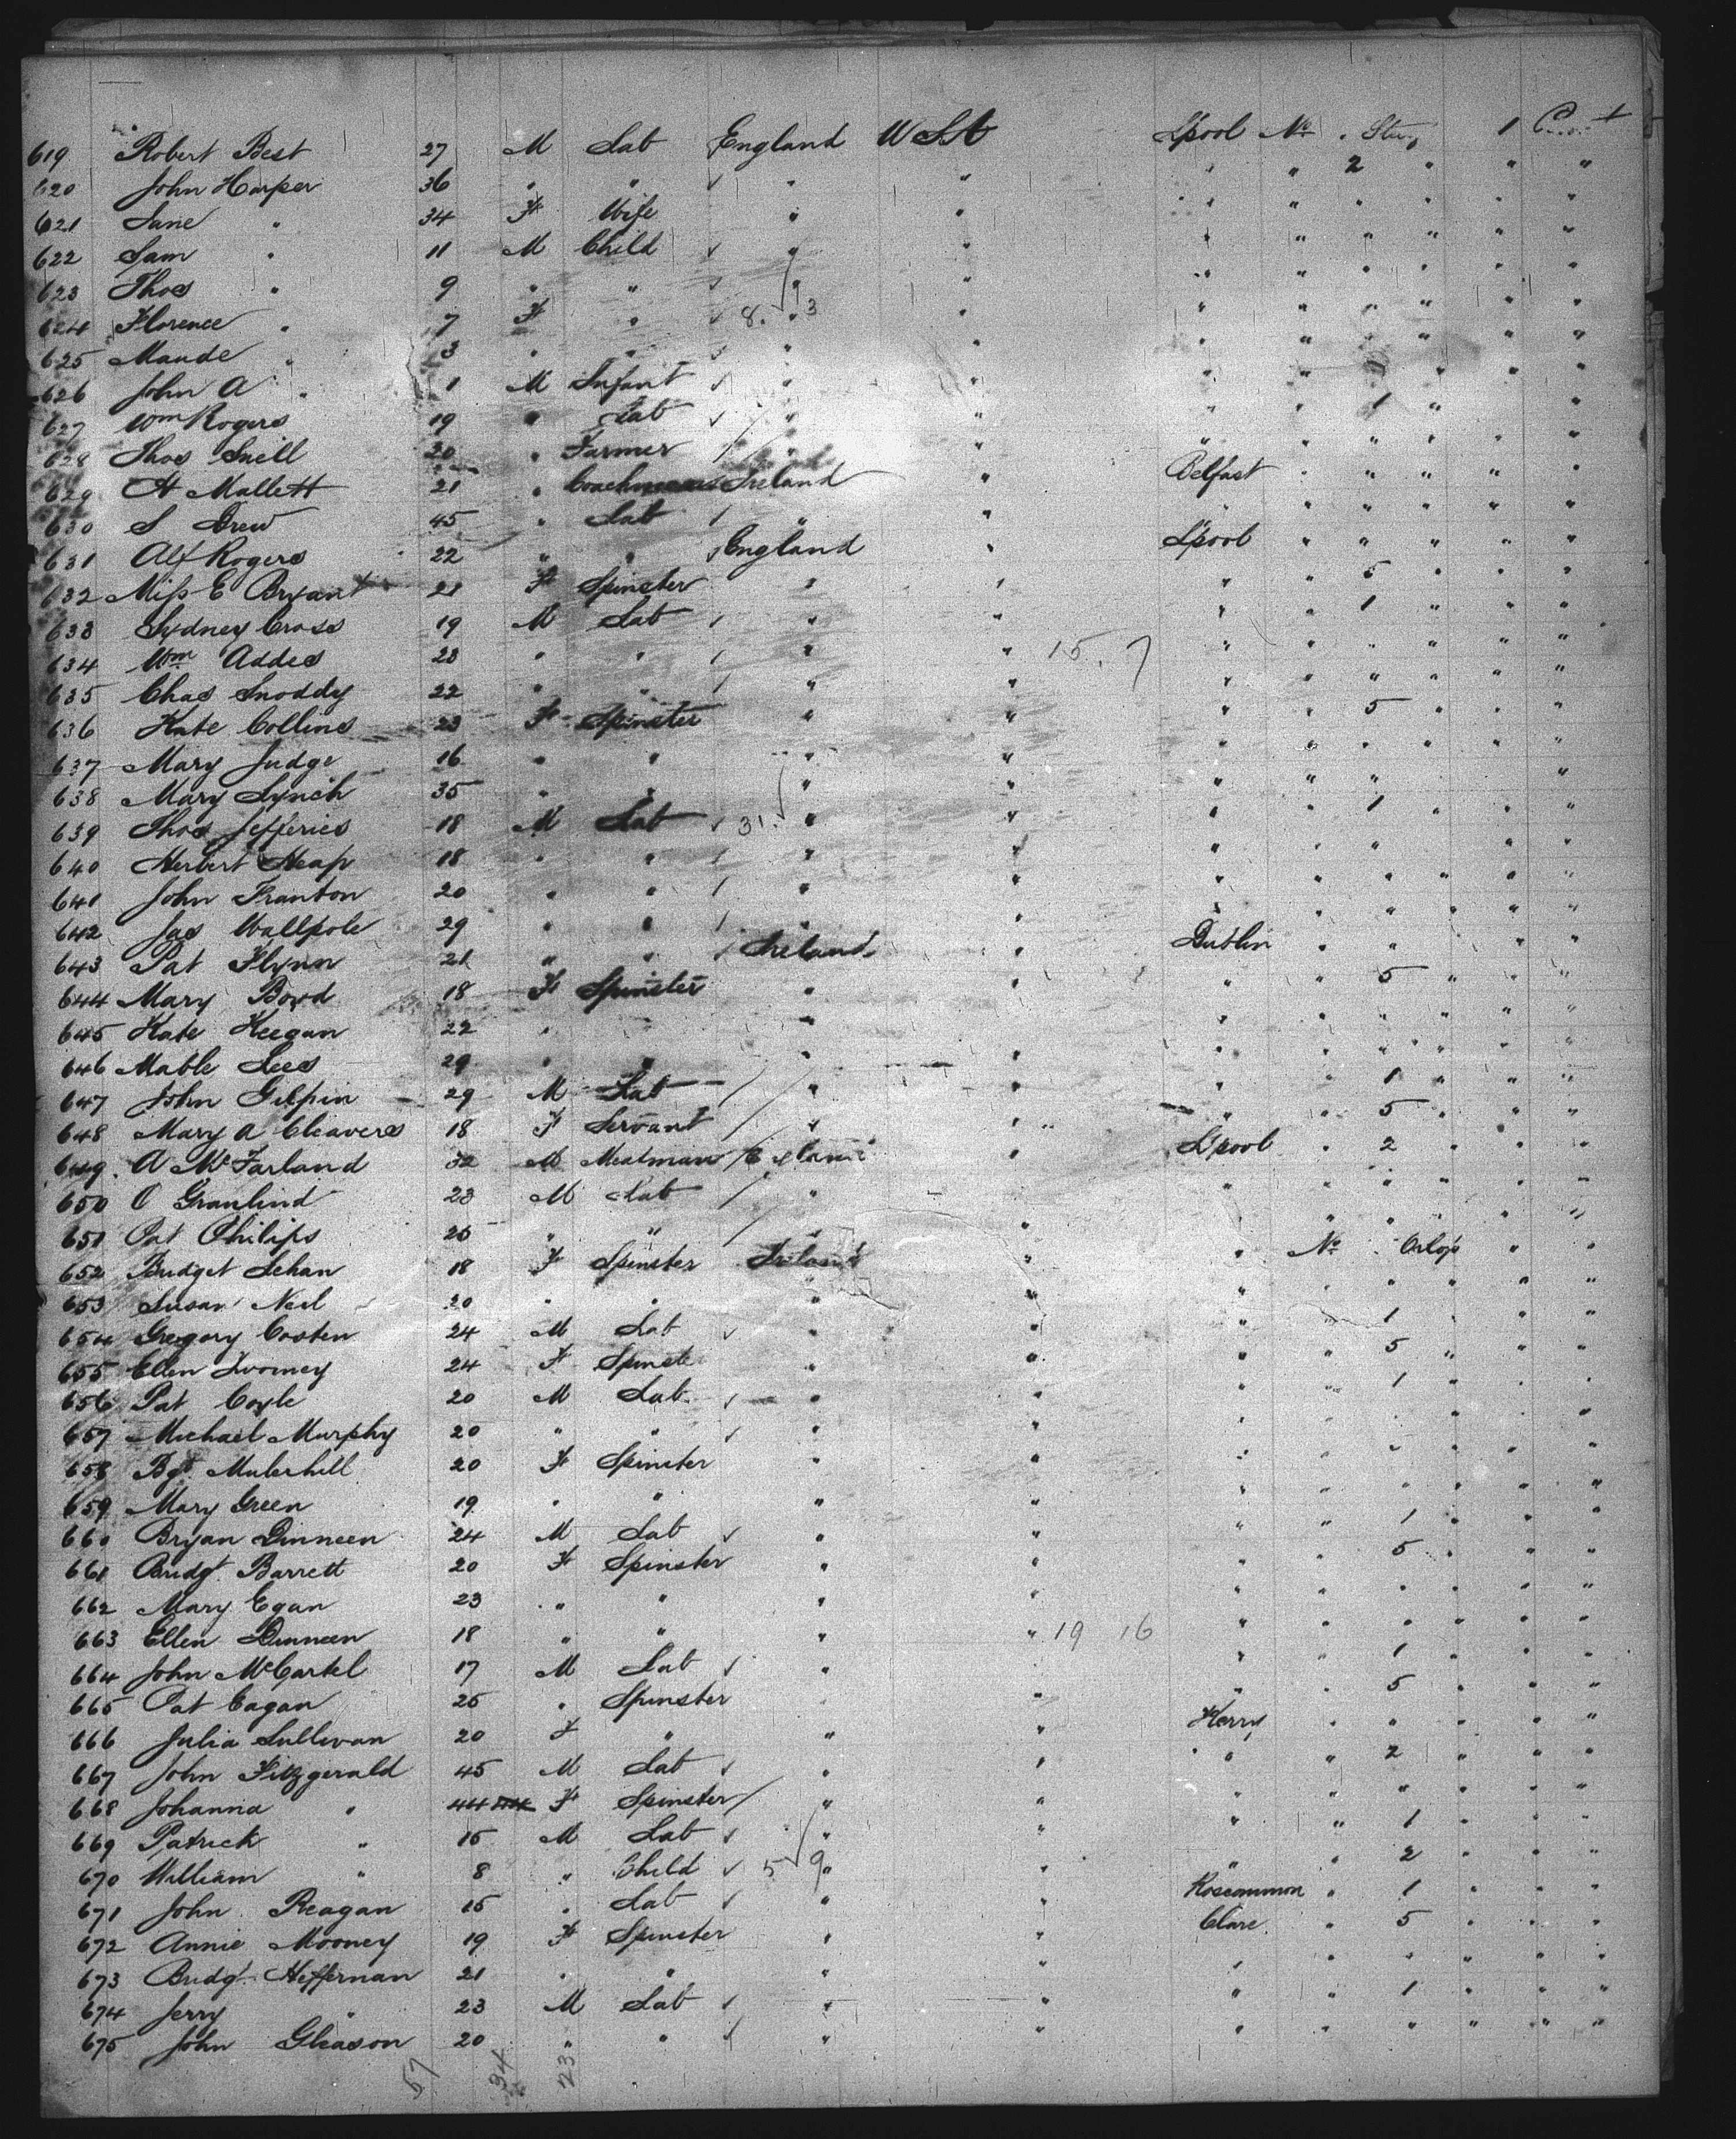 619 Robert Best 27 M Lab England USA L'pool No. 1
620 John Harper 36 " " " " " " 2 " " "
621 Jane " 34 F Wife " " " " " " " "
622 Sam " 11 M Child " " " " " " " "
623 Thos " 9 " " " " " " " " " "
624 Florence " 7 F " 8. 3 " " " " " " " "
625 Maude " 3 " " " " " " " " " "
626 John A " 1 M Infant " " " " " " " "
627 Wm Rogers 19 " Lab " " " " 1 " "
628 Thos Snell 20 " Farmer " " " " " " " "
629 A Mallett 21 " Ireland " Belfast " " " " "
630 S Drew 45 " Lab " " " " " " " "
631 Alf Rogers 22 " " England " L'pool " " " " "
632 Miss E Bryant 21 F Spinster " " " " 5 " " "
633 Sydney Cross 19 M Lab " " " 1 " " "
634 Wm Addes 23 " " " " 15. 7 " " " " " "
635 Chas Snoddy 22 " " " " " " " " " "
636 Kate Collins 23 F Spinster " " " " 5 " " "
637 Mary Judge 16 " " " " " " " " " "
638 Mary Lynch 35 " " " " " " " "
639 Thos Jefferies 18 M Lab 31. " " " 1 " " "
640 Herbert Heap 18 " " " " " " " " "
641 John Franton 20 " " " " " " " " " "
642 Jas Wallpole 29 " " " " " " " " " "
643 Pat Flynn 21 " " Ireland " Dublin " " " " "
644 Mary Boyd 18 F Spinster " " " " 5 " " "
645 Kate Keegan 22 " " " " " " " "
646 Mable Lees 29 " " " " " " " " " "
647 John Gilpin 29 M Lab " " " " 1 " " "
648 Mary A Cleavers 18 F Servant " " " " 5 " " "
649 A McFarland 32 M " L'pool " 2 " " "
650 23 M Lab " " " " " " "
651 Pat Philips 25 " " " " " " " " "
652 Bridget Lehan 18 F Spinster Ireland " " No. Orlop " "
653 Susan Neil 20 " " " " " " " " " "
654 Gregory Costen 24 M Lab " " " 1 " " "
655 Ellen Twomey 24 F Spinste " " " " 5 " " "
656 Pat Coyle 20 M Lab " " " " 1 " " "
657 Michael Murphy 20 " " " " " " " " " "
658 Bgt. Mulerhill 20 F Spinster " " " " " " " "
659 Mary Green 19 " " " " " " " " " "
660 Bryan Dinneen 24 M Lab " " " " 1 " " "
661 Bridgt. Barrett 20 F Spinster " " " " 5 " " "
662 Mary Egan 23 " " " " " " " " " "
663 Ellen Dinneen 18 " " " " 19 16 " " " " " "
664 John McCartel 17 M Lab " " " 1 " " "
665 Pat Eagan 25 " Spinster " " " 5 " " "
666 Julia Sullivan 20 F " " " Kerry " " " " "
667 John Fitzgerald 45 M Lab " " " " 2 " " "
668 Johanna " 44 F Spinster " " " " " " " "
669 Patrick " 15 M Lab " " " " 1 " " "
670 William " 8 " Child 5 9 " " " " 2 " " "
671 John Reagan 15 " Lab " " Roscommon " 1 " " "
672 Annie Mooney 19 F Spinster " " Clare " 5 " " "
673 Bridgt. Heffernan 21 " " " " " " " " " "
674 Jerry " 23 M Lab " " " " 1 " " "
675 John Gleason 20 " " " " " " " " " "
57 34 23